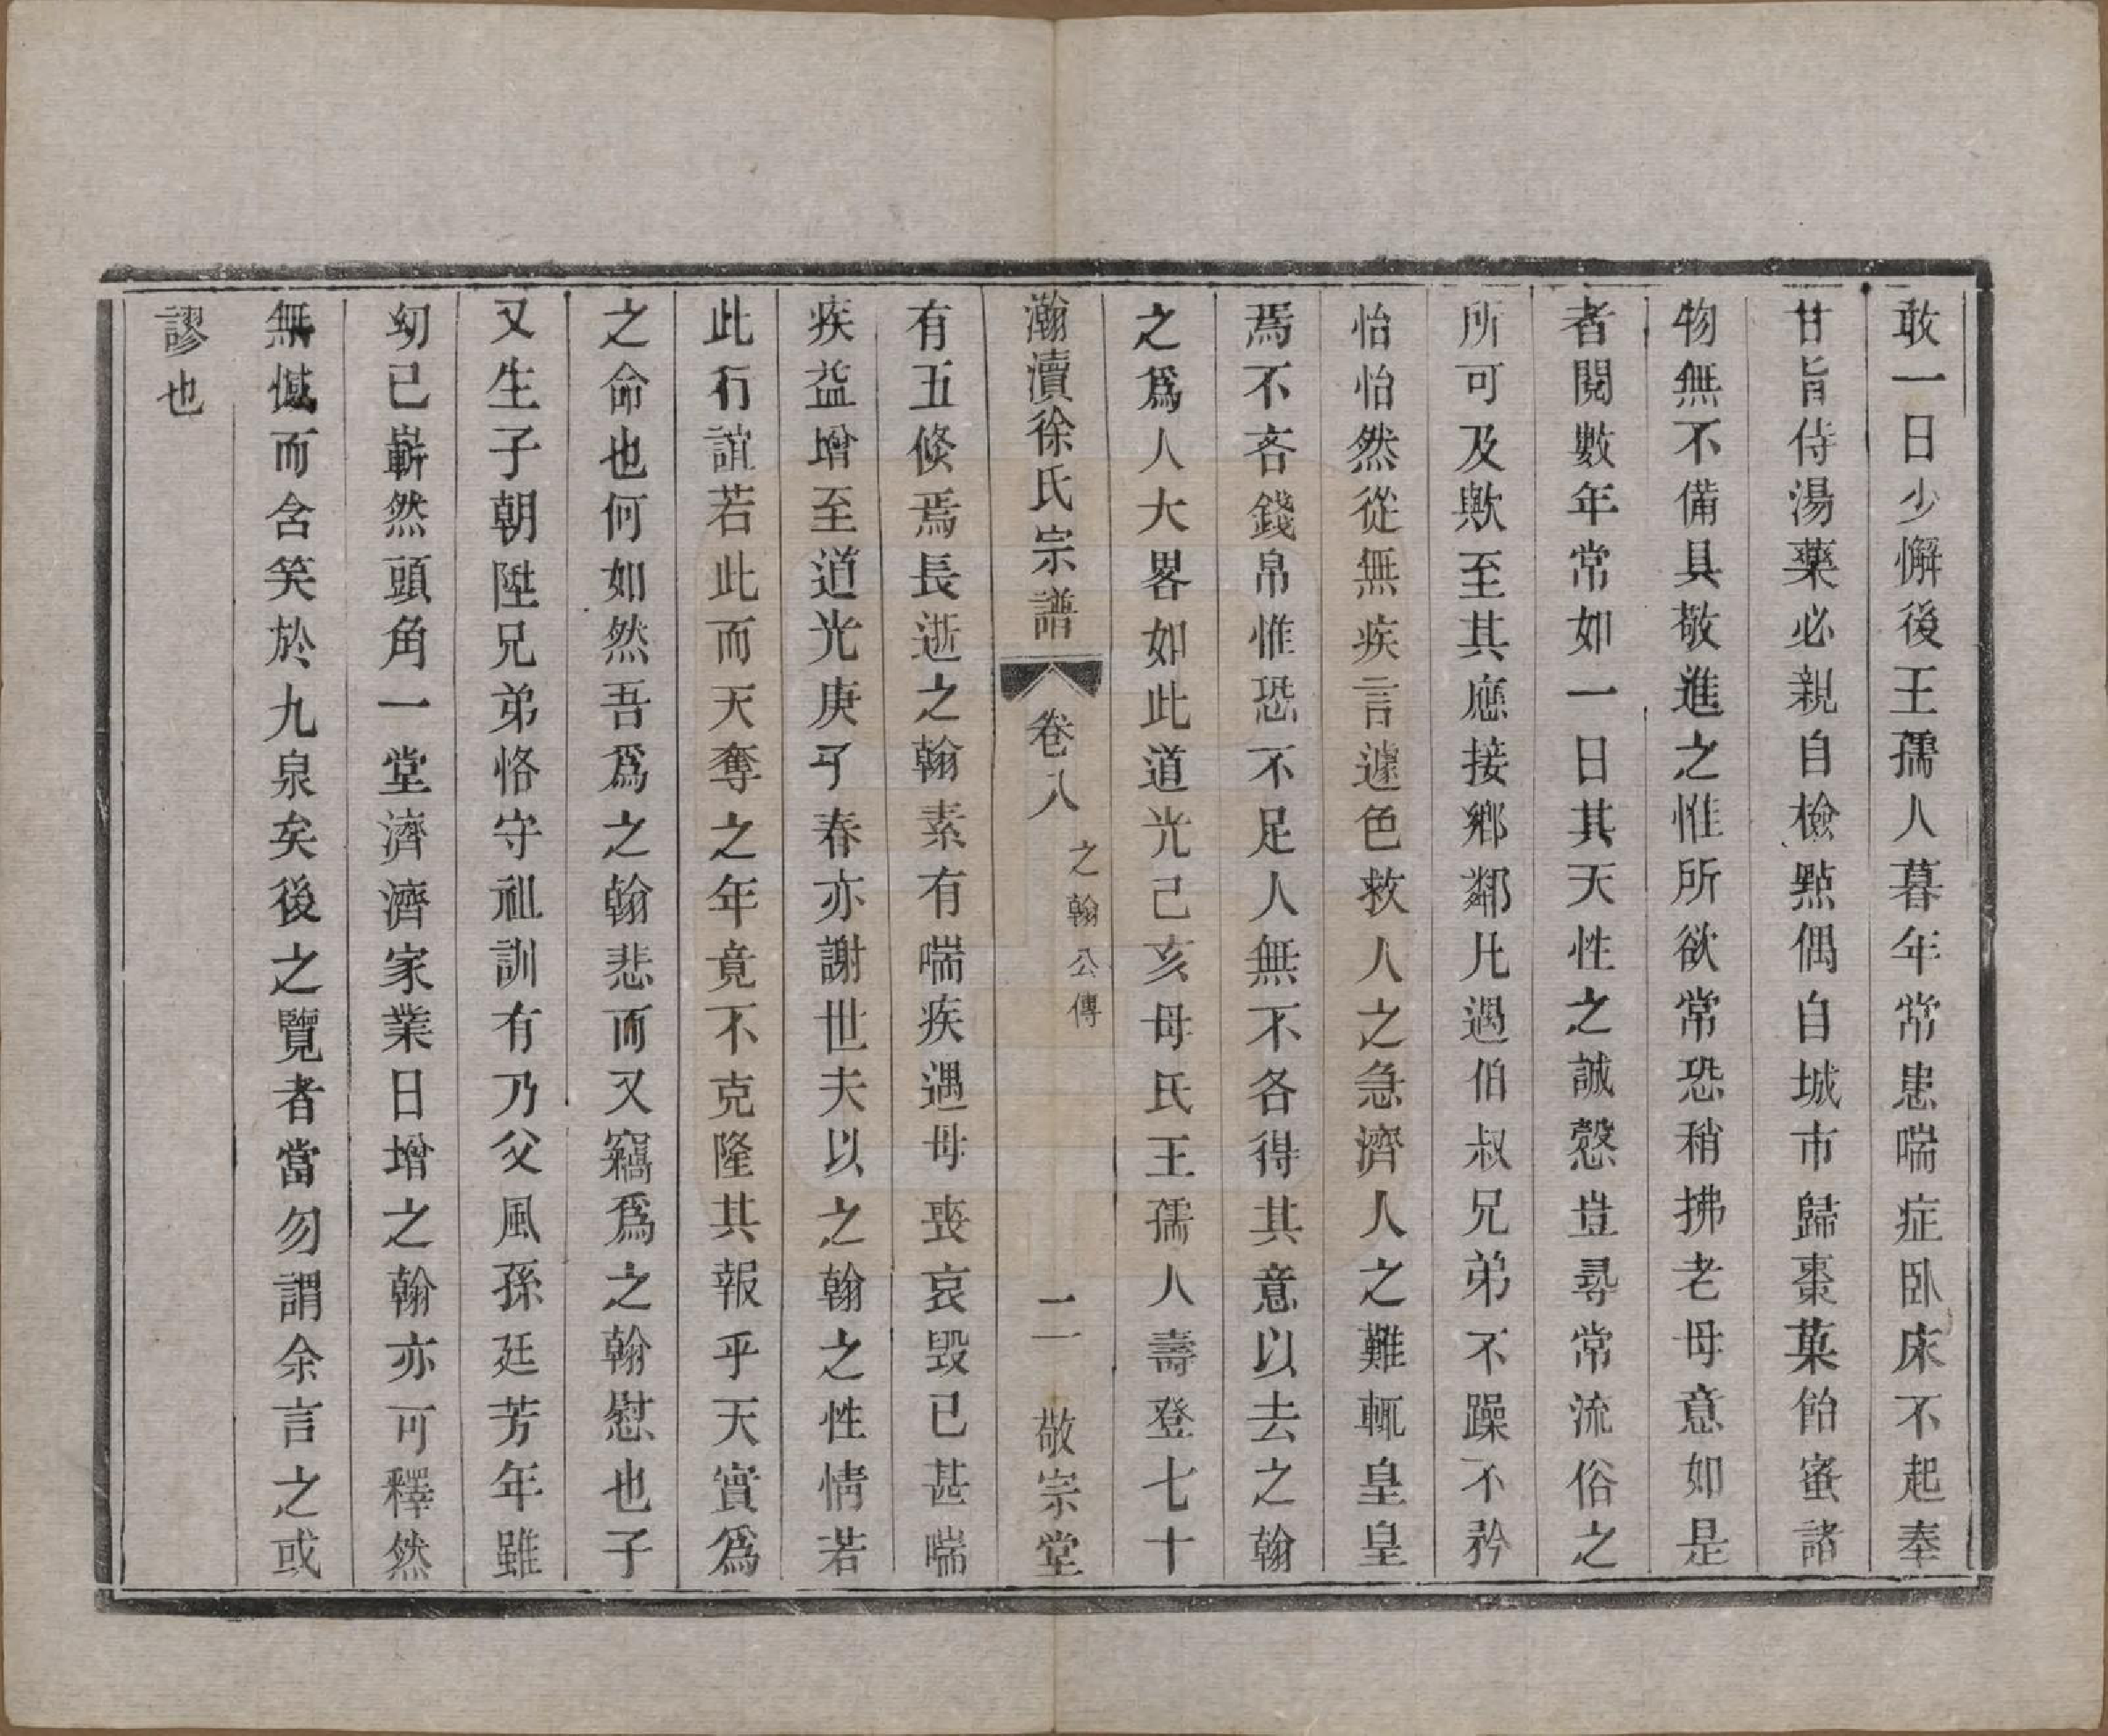 敢一日少懈後王孺人暮年常患喘症臥床不起奉
甘旨侍湯藥必親自檢點偶自城市歸棗菓飴蜜諸
物無不備具敬進之惟所欲常恐稍拂老母意如是
者閱數年常如一日其天性之誠慤豈尋常流俗之
所可及歟至其應接鄉鄰凡遇伯叔兄弟不躁不矜
怡怡然從無疾言遽色救人之急濟人之難輒皇皇
焉不吝錢帛惟恐不足人無不各得其意以去之翰
之爲人大畧如此道光己亥母氏王孺人壽登七十
瀚瀆徐氏宗譜 卷八 之翰公傳 二 敬宗堂
有五倏焉長逝之翰素有喘疾遇母喪哀毀已甚喘
疾益增至道光庚子春亦謝世夫以之翰之性情若
此行誼若此而天奪之年竟不克隆其報乎天實爲
之命也何如然吾爲之翰悲而又竊爲之翰慰也子
又生子朝陞兄弟恪守祖訓有乃父風孫廷芳年雖
幼已嶄然頭角一堂濟濟家業日增之翰亦可釋然
無憾而含笑於九泉矣後之覽者當勿謂余言之或
謬也